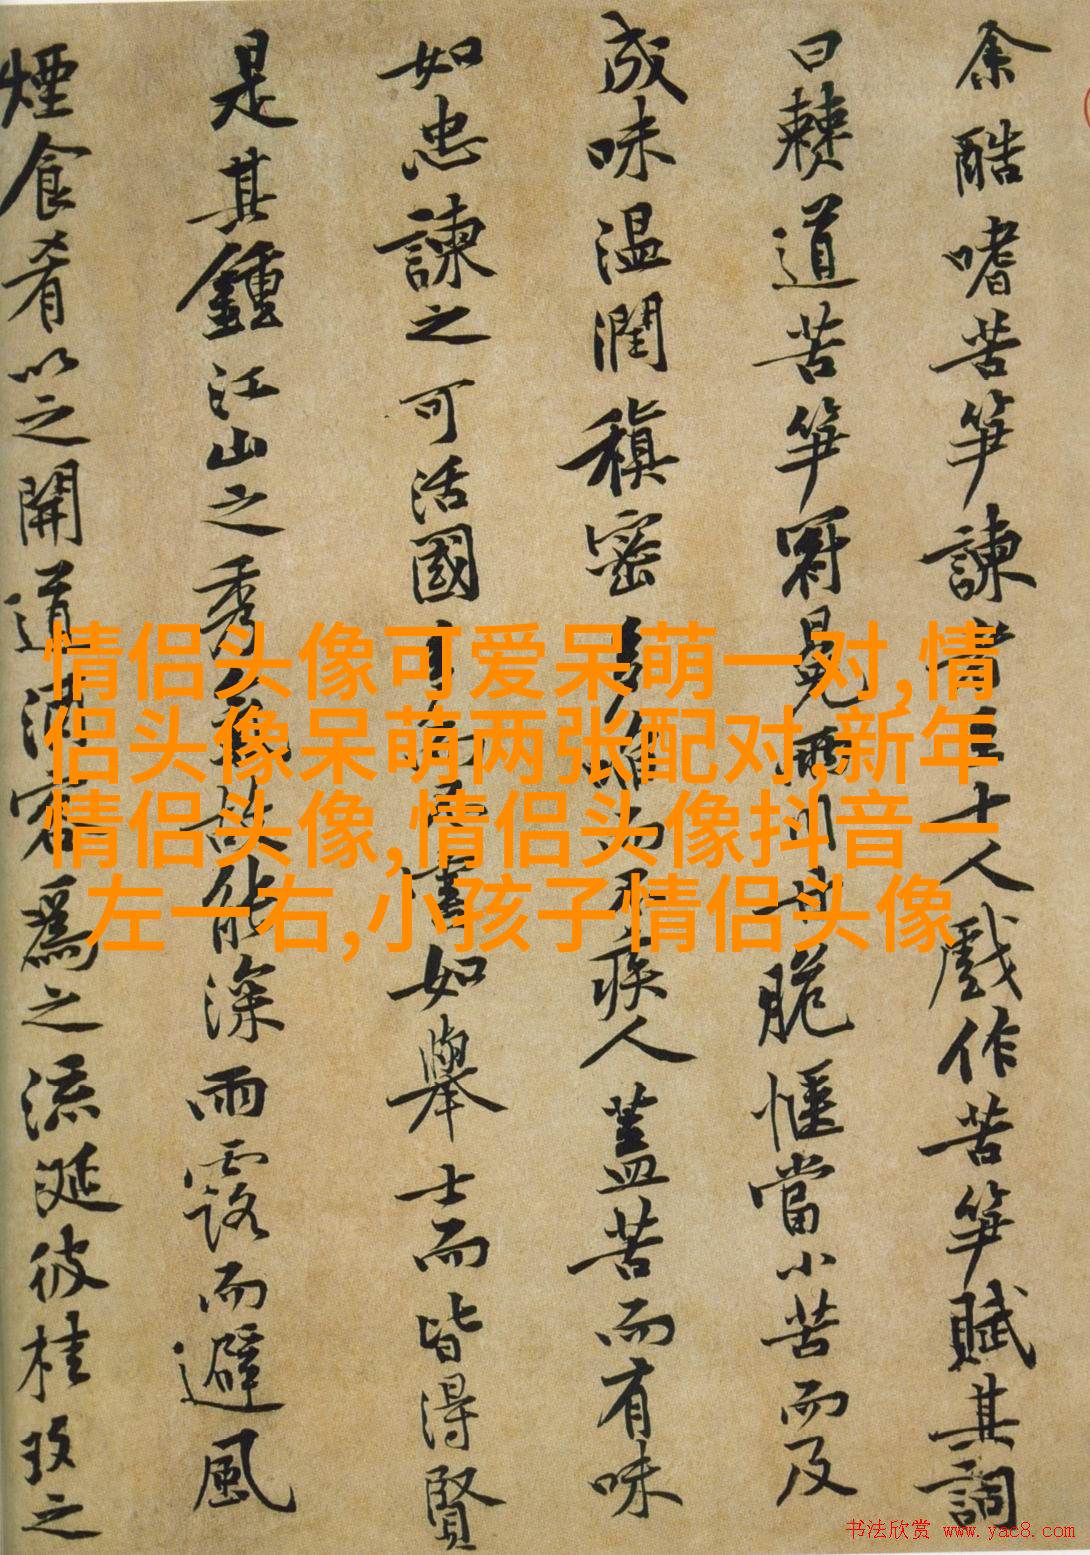 余酷嗜苦笋諫者至十人戲作苦笋賦其詞
曰僰道苦笋冠冕兩川甘脆愜當小苦而及
成味温潤稹密多啗而不疾人蓋苦而有味
如忠諫之可活國多而不害如舉士而皆得賢
是其鍾江山之秀氣故能深雨露而避風
煙食肴以之開道酒客爲之流涎彼桂玫之
情侣头像可爱呆萌一对,情
侣头像呆萌两张配对,新年
情侣头像,情侣头像抖音一
左一右,小孩子情侣头像
书法欣赏 www.yac8.com